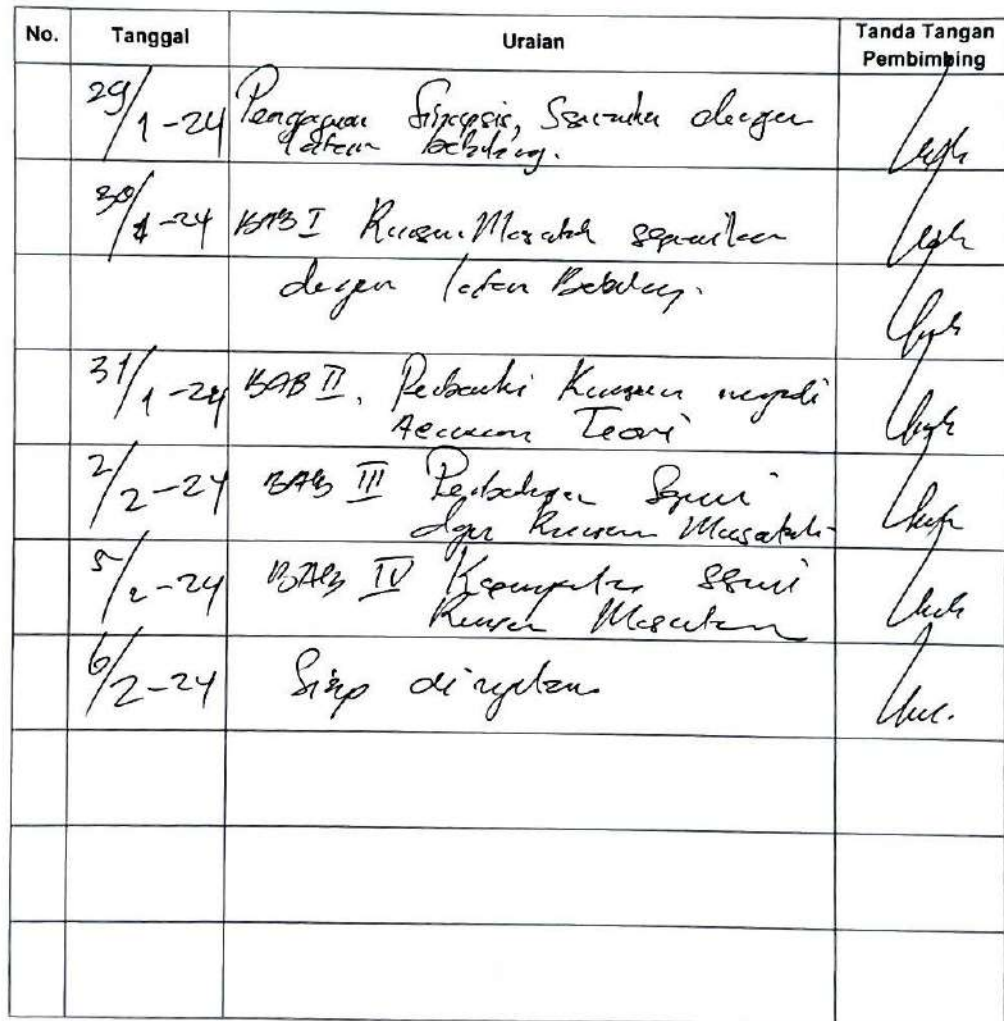 No. Tanggal Uraian Tanda Tangan
Pembimbing
29/1-24 Pengajuan Sinopsis, Sesuaikan dengan
latar belakang.
30/1-24 BAB I Rumusan Masalah sesuaikan
dengan latar Belakang.
31/1-24 BAB II, Perbaiki menjadi
Teori
2/2-24 BAB III Sesuai
dgn Rumusan Masalah
5/2-24 BAB IV Kesimpulan Sesuai
Rumusan Masalah
6/2-24 Siap